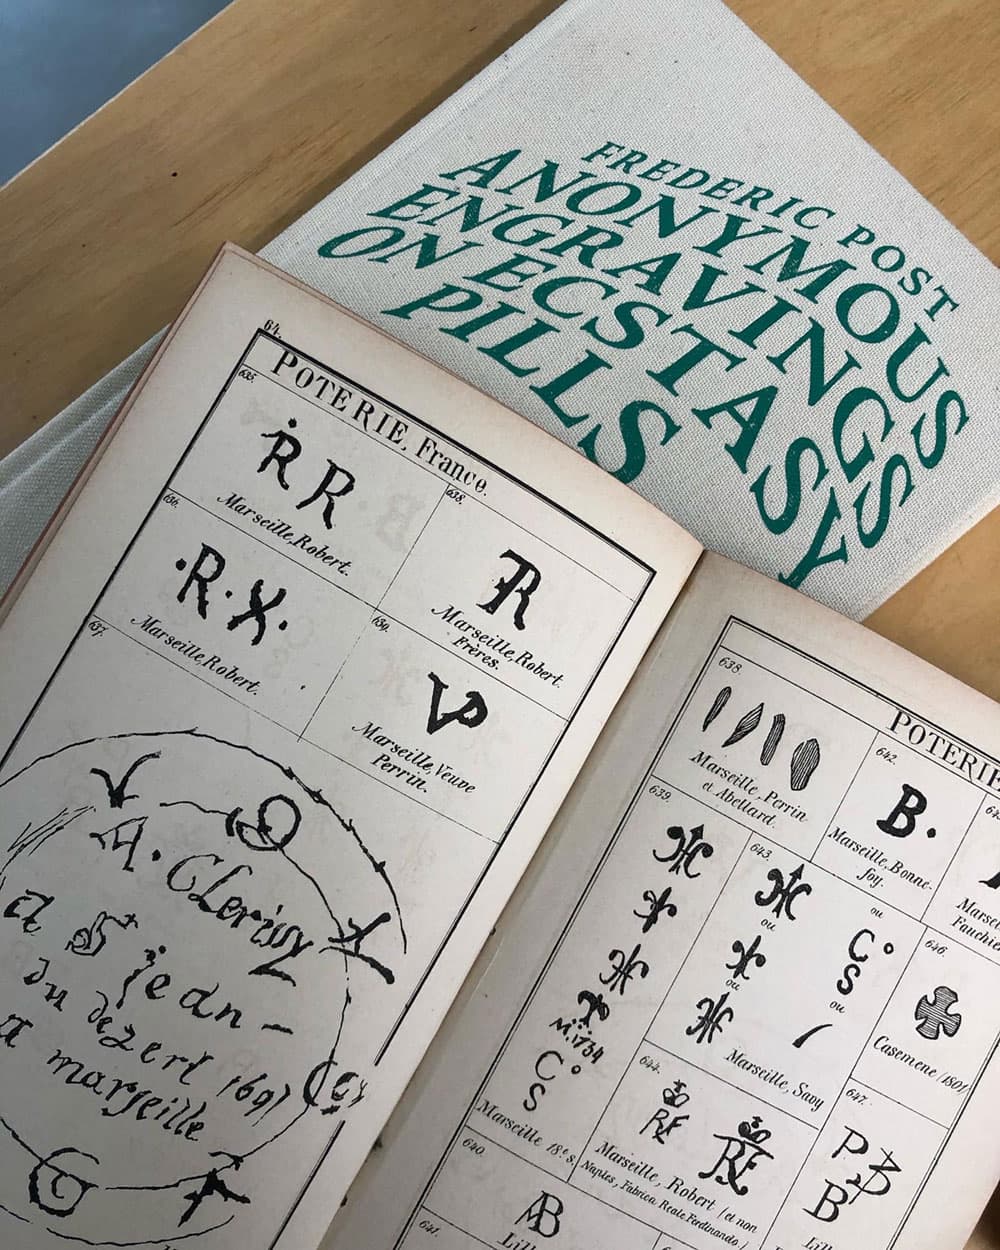 FREDERIC POST
ANONYMOUS
ENGRAVINGS
ON ECSTASY
PILLS
64.
POTERIE, France.
635.
R R
Marseille, Robert.
636.
·R·X·
Marseille, Robert.
637.
A. Clerissy
a St jean-
du dezert 1697
a marseille
638.
R
Marseille, Robert
Frères.
639.
VP
Marseille, Veuve
Perrin.
POTERIE
638.
Marseille, Perrin
et Abellard.
639.
M.1734
C°
S
Marseille 18e s.
640.
AB
Lill
641.
642.
B.
Marseille, Bonne-
foy.
643.
ou
ou
ou
C°
S
ou
Marseille, Savy
644.
RE
RE
Marseille, Robert (et non
Naples, Fabrica Reale Ferdinando)
Marse
Fauchie
646.
Casemene (1801)
647.
P B
B
Lill